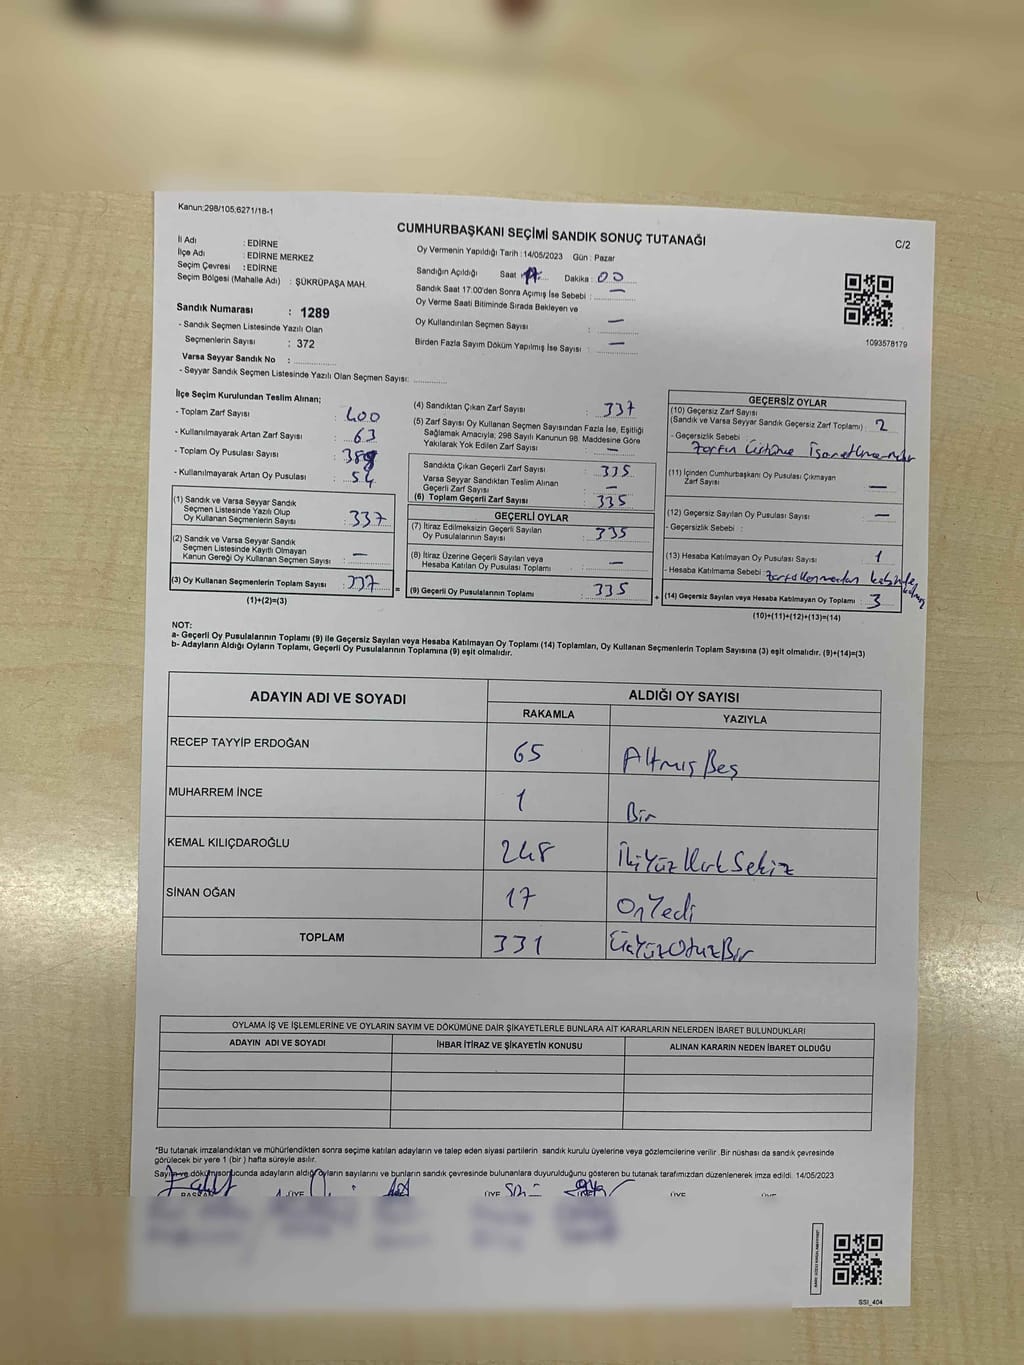 Kanun:298/105;6271/18-1
CUMHURBAŞKANI SEÇİMİ SANDIK SONUÇ TUTANAĞI
C/2
İl Adı : EDİRNE
İlçe Adı : EDİRNE MERKEZ
Seçim Çevresi : EDİRNE
Seçim Bölgesi (Mahalle Adı) : ŞÜKRÜPAŞA MAH.
Oy Vermenin Yapıldığı Tarih : 14/05/2023 Gün : Pazar
Sandığın Açıldığı Saat : 17 Dakika : 00
Sandık Saat 17:00'den Sonra Açımış İse Sebebi : —
Oy Verme Saati Bitiminde Sırada Bekleyen ve
Oy Kullandırılan Seçmen Sayısı : —
Birden Fazla Sayım Döküm Yapılmış İse Sayısı : —
1093578179
Sandık Numarası : 1289
- Sandık Seçmen Listesinde Yazılı Olan
Seçmenlerin Sayısı : 372
Varsa Seyyar Sandık No :
- Seyyar Sandık Seçmen Listesinde Yazılı Olan Seçmen Sayısı:
İlçe Seçim Kurulundan Teslim Alınan;
- Toplam Zarf Sayısı : 400
- Kullanılmayarak Artan Zarf Sayısı : 63
- Toplam Oy Pusulası Sayısı
- Kullanılmayarak Artan Oy Pusulası : 54
(1) Sandık ve Varsa Seyyar Sandık
Seçmen Listesinde Yazılı Olup
Oy Kullanan Seçmenlerin Sayısı : 337
(2) Sandık ve Varsa Seyyar Sandık
Seçmen Listesinde Kayıtlı Olmayan
Kanun Gereği Oy Kullanan Seçmen Sayısı : —
(3) Oy Kullanan Seçmenlerin Toplam Sayısı : 337
(1)+(2)=(3)
=
(4) Sandıktan Çıkan Zarf Sayısı : 337
(5) Zarf Sayısı Oy Kullanan Seçmen Sayısından Fazla İse, Eşitliği
Sağlamak Amacıyla; 298 Sayılı Kanunun 98. Maddesine Göre
Yakılarak Yok Edilen Zarf Sayısı : —
Sandıkta Çıkan Geçerli Zarf Sayısı : 335
Varsa Seyyar Sandıktan Teslim Alınan
Geçerli Zarf Sayısı : —
(6) Toplam Geçerli Zarf Sayısı : 335
GEÇERLİ OYLAR
(7) İtiraz Edilmeksizin Geçerli Sayılan
Oy Pusulalarının Sayısı : 335
(8) İtiraz Üzerine Geçerli Sayılan veya
Hesaba Katılan Oy Pusulası Toplamı : —
(9) Geçerli Oy Pusulalarının Toplamı : 335
+
GEÇERSİZ OYLAR
(10) Geçersiz Zarf Sayısı
(Sandık ve Varsa Seyyar Sandık Geçersiz Zarf Toplamı) : 2
- Geçersizlik Sebebi :
zarfın üstüne
(11) İçinden Cumhurbaşkanı Oy Pusulası Çıkmayan
Zarf Sayısı : —
(12) Geçersiz Sayılan Oy Pusulası Sayısı : —
- Geçersizlik Sebebi :
(13) Hesaba Katılmayan Oy Pusulası Sayısı : 1
- Hesaba Katılmama Sebebi :
(14) Geçersiz Sayılan veya Hesaba Katılmayan Oy Toplamı : 3
(10)+(11)+(12)+(13)=(14)
NOT:
a- Geçerli Oy Pusulalarının Toplamı (9) ile Geçersiz Sayılan veya Hesaba Katılmayan Oy Toplamı (14) Toplamları, Oy Kullanan Seçmenlerin Toplam Sayısına (3) eşit olmalıdır. (9)+(14)=(3)
b- Adayların Aldığı Oyların Toplamı, Geçerli Oy Pusulalarının Toplamına (9) eşit olmalıdır.
ADAYIN ADI VE SOYADI
ALDIĞI OY SAYISI
RAKAMLA YAZIYLA
RECEP TAYYİP ERDOĞAN 65 Altmış Beş
MUHARREM İNCE 1 Bir
KEMAL KILIÇDAROĞLU 248 İkiYüz Kırk Sekiz
SİNAN OĞAN 17 On Yedi
TOPLAM 331 ÜçYüzOtuzBir
OYLAMA İŞ VE İŞLEMLERİNE VE OYLARIN SAYIM VE DÖKÜMÜNE DAİR ŞİKAYETLERLE BUNLARA AİT KARARLARIN NELERDEN İBARET BULUNDUKLARI
ADAYIN ADI VE SOYADI İHBAR İTİRAZ VE ŞİKAYETİN KONUSU ALINAN KARARIN NEDEN İBARET OLDUĞU
*Bu tutanak imzalandıktan ve mühürlendikten sonra seçime katılan adayların ve talep eden siyasi partilerin sandık kurulu üyelerine veya gözlemcilerine verilir .Bir nüshası da sandık çevresinde
görülecek bir yere 1 (bir ) hafta süreyle asılır.
sonucunda adayların aldığı oyların sayılarını ve bunların sandık çevresinde bulunanlara duyurulduğunu gösteren bu tutanak tarafımızdan düzenlenerek imza edildi. 14/05/2023
BAŞKAN ÜYE ÜYE ÜYE ÜYE
SSI_404